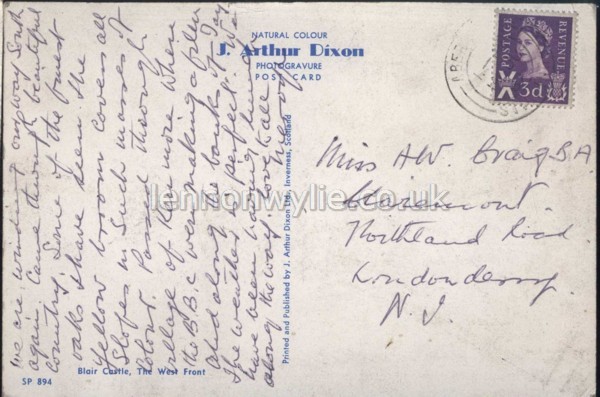 NATURAL COLOUR
J. Arthur Dixon
PHOTOGRAVURE
POST CARD
POSTAGE
REVENUE
3d
We are winding our way South
again. Came through beautiful
country. Some of the finest
oaks I have seen. The
Yellow broom covers all
Slopes in such masses of
Colour. Passed through
village of Kenmore where
the B.B.C. were making a film
and along the banks of Tay
The weather is perfect. We
have been having
along the way. love to all
Miss A W Craig B A
Claremont.
Northland Road
Londonderry
N. I.
lennonwylie.co.uk
Printed and Published by J. Arthur Dixon Ltd., Inverness, Scotland
Blair Castle, The West Front
SP 894